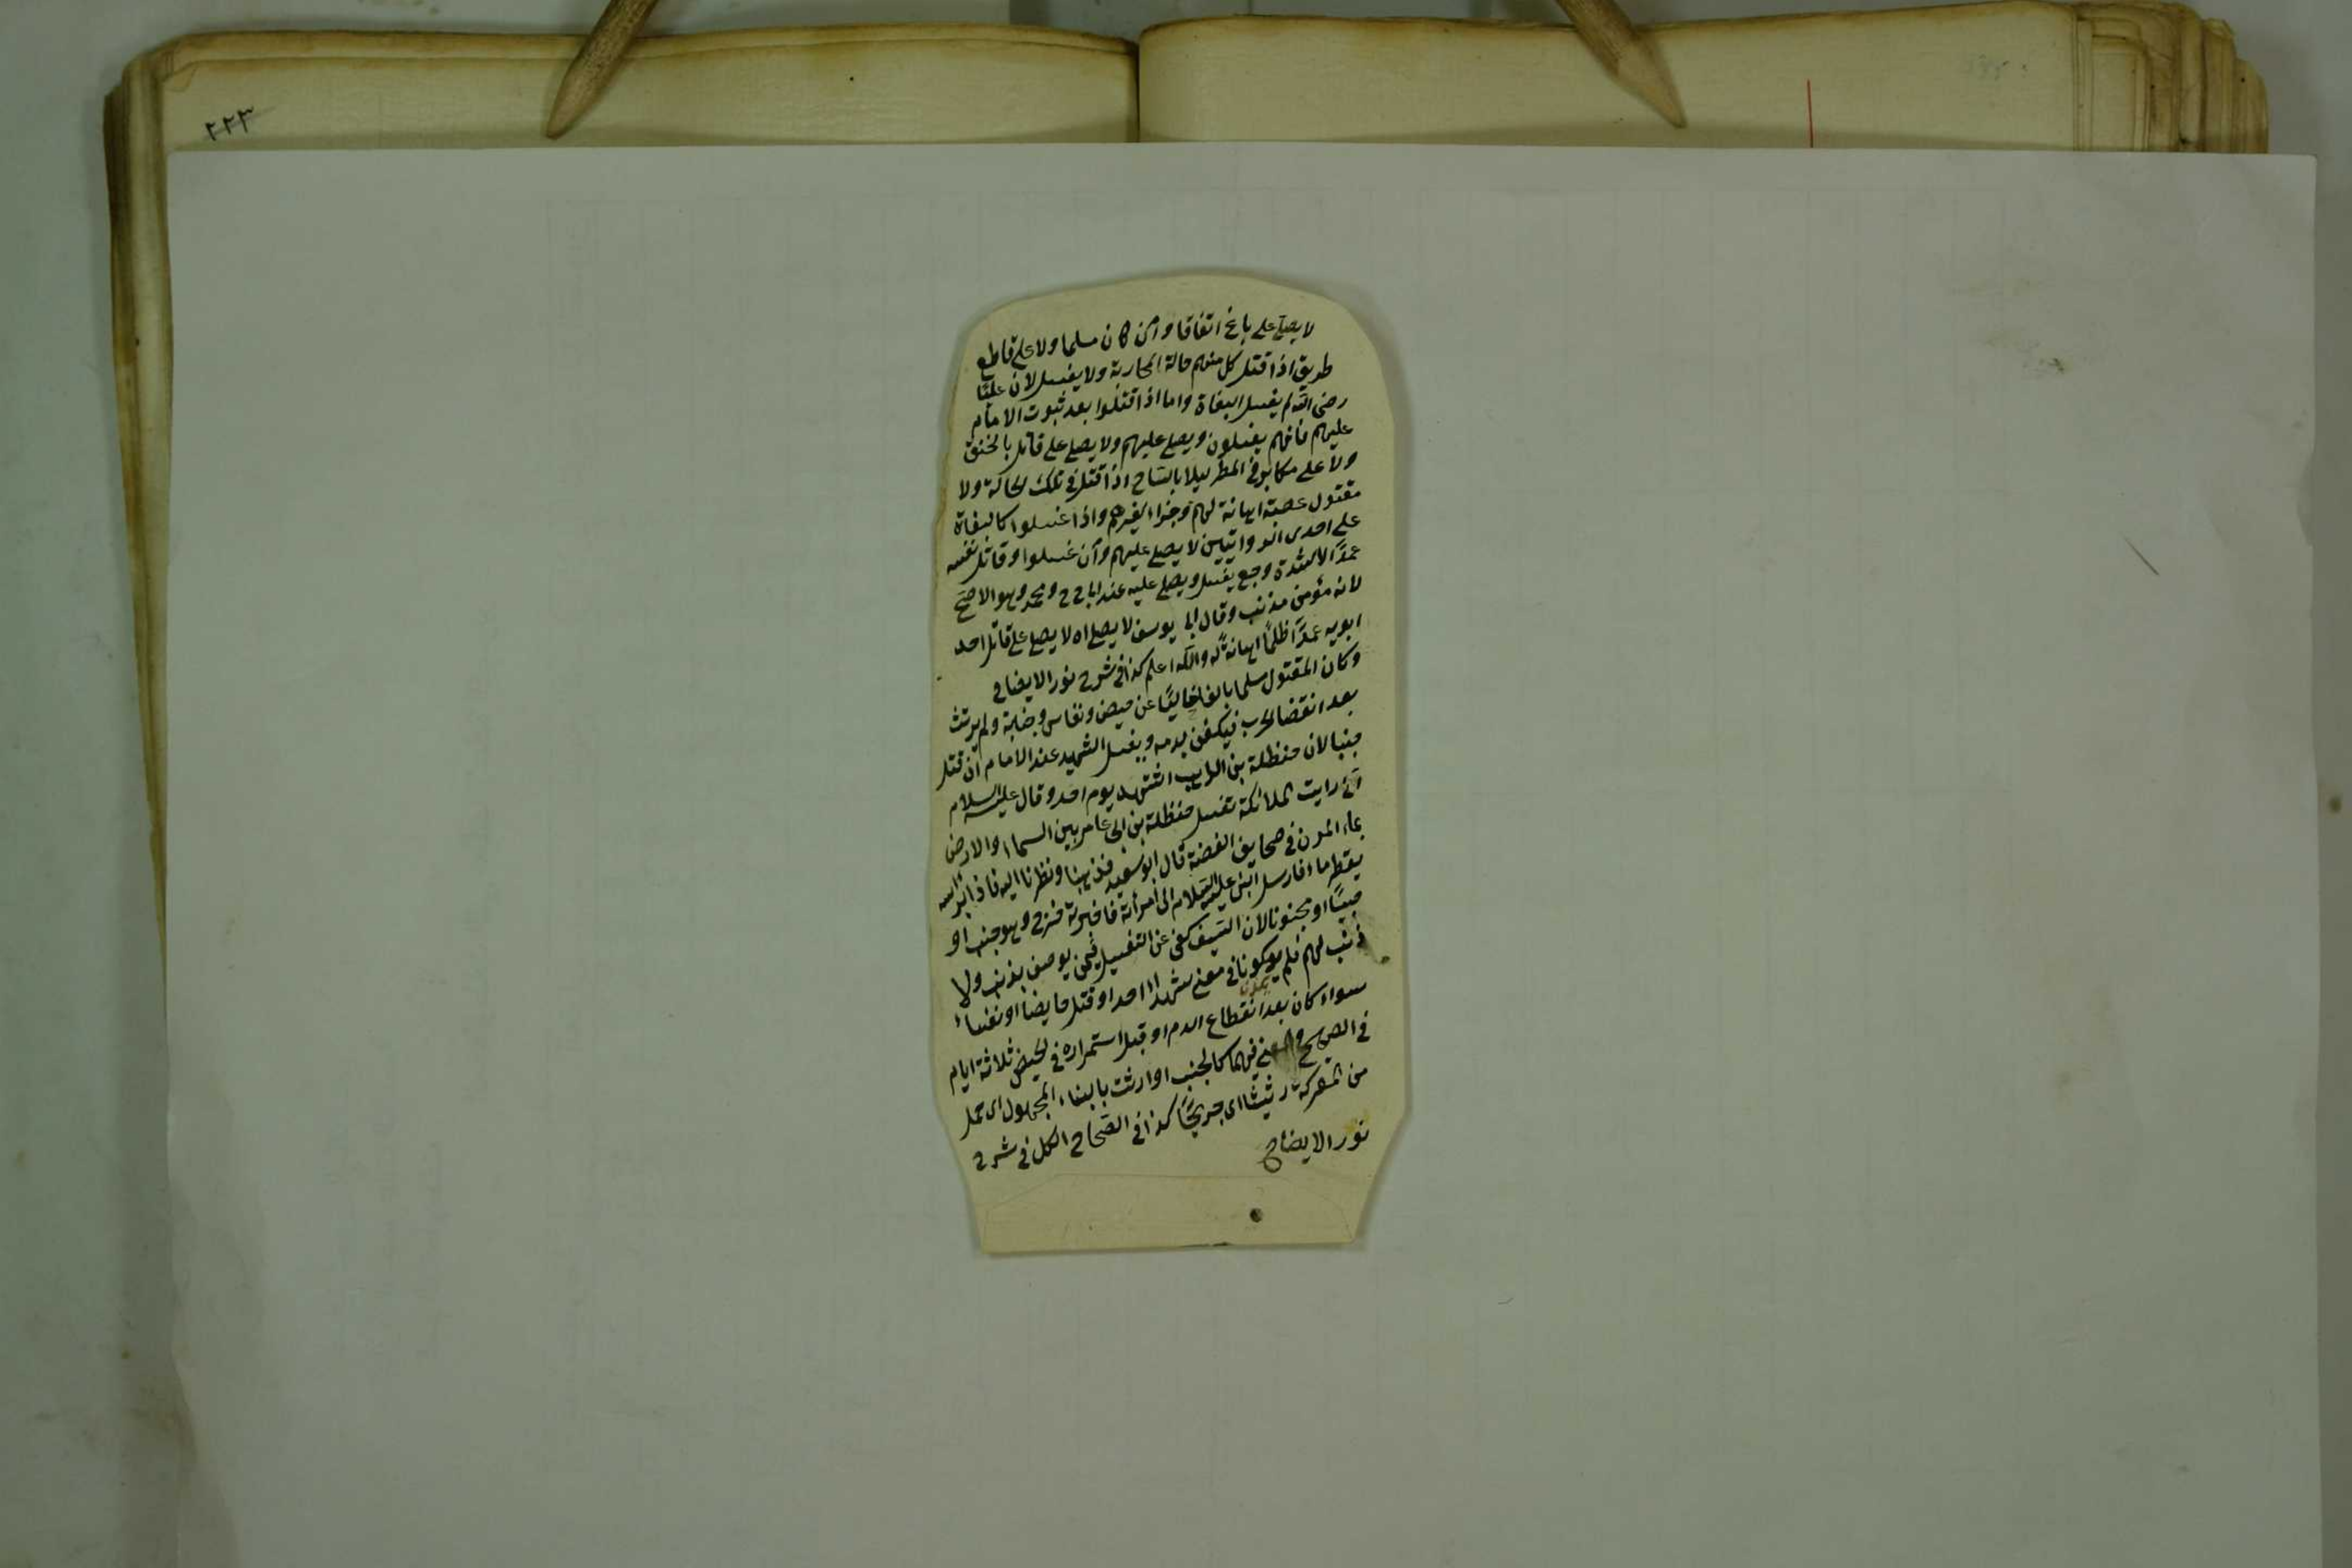 ٢٢٣
لا يصلى على باغ اتفاقا وان كان مسلما ولا على قاطع
طريق اذا قتل كل منهم حالة المحاربة ولا يغسل لان عليًا
رضى الله لم يغسل البغاة واما اذا قتلوا بعد ثبوت الامام
عليهم فانهم يغسلون ويصلى عليهم ولا يصلى على قاتل بالخنق
ولا على مكابر فى المطر ليلا بالسلاح اذا قتل فى تلك الحالة ولا
مقتول عصبة اهانة لهم وجزا لغيرهم واذا غسلوا كالبغاة
على احدى الروايتين لا يصلى عليهم وان غسلوا وقاتل نفسه
عمدًا لا لشدة وجع يغسل ويصلى عليه عند ابا ح ومحمد وهو الاصح
لانه مؤمن مذنب وقال ابى يوسف لا يصلى اه لا يصلى على قاتل احد
ابويه عمدًا ظلمًا اهانةً له والله اعلم كذا فى شرح نور الايضاح
وكان المقتول مسلما بالغا خاليًا عن حيض ونفاس وجنابة ولم يرتث
بعد انقضا الحرب فيكفن بدمه ويغسل الشهيد عند الامام ان قتل
جنبا لان حنظلة بن الراهب استشهد يوم احد وقال عليه السلام
انى رايت الملائكة تغسل حنظلة بن ابى عامر بين السماء والارض
بماء المزن فى صحايف الفضة قال ابو سعيد فذهبنا ونظرنا اليه فاذا برأسه
يقطر ماء فارسل النبى عليه السلام الى امرأته فاخبرته خرج وهو جنب او
صبيًا او مجنونا لان السيف كفى عن التغسيل فيمن يوصف بذنب ولا
ذنب لهم فلم يكونا فى معنى شهداء احد او قتل حايضا او نفساء
سواء كان بعد انقطاع الدم او قبل استمراره فى الحيض ثلاثة ايام
فى الصحيح والمعنى فيهما كالجنب او ارتث بالبناء المجهول اى حمل
من المعركة رثيثا اى جريحًا كذا فى الصحاح الكل فى شرح
نور الايضاح